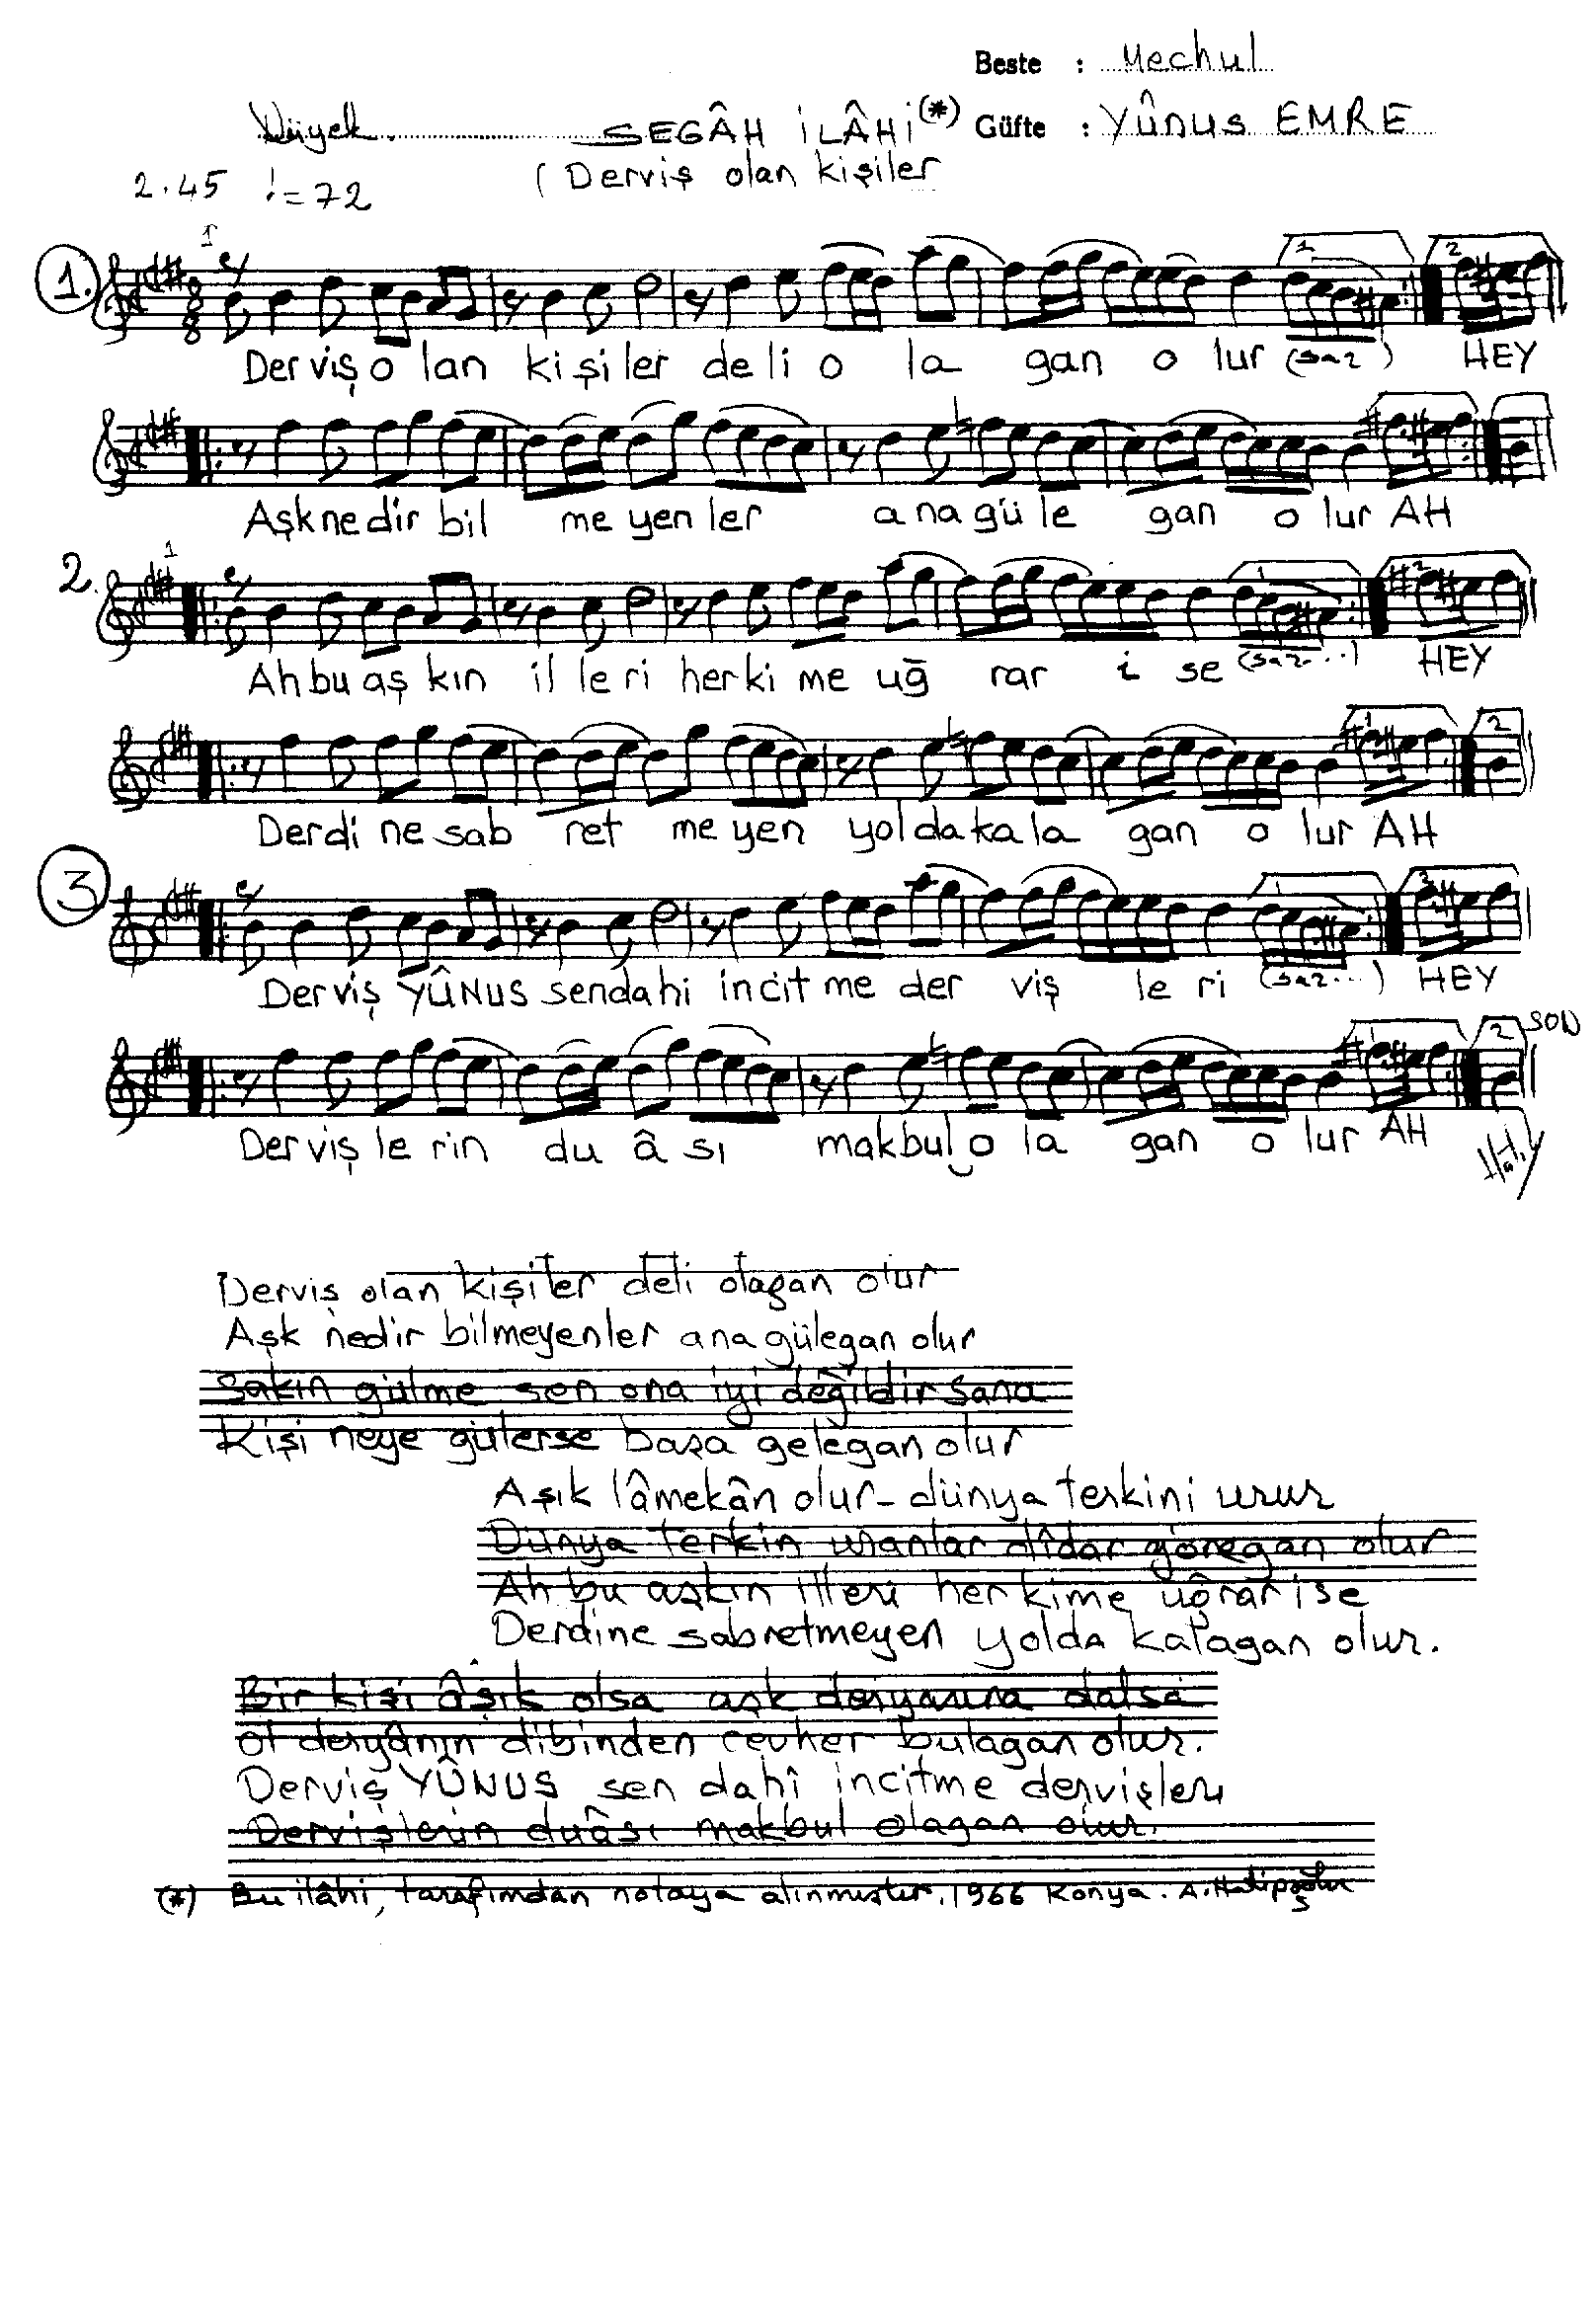 Beste : Mechul
Düyek. SEGÂH İLÂHİ (*) Güfte : YÛNUS EMRE
2.45 ! = 72 ( Derviş olan kişiler
1
1. 8 8
1. 2
Der viş o lan ki şi ler de li o la gan o lur (saz) HEY
Aşk ne dir bil me yen ler a na gü le gan o lur AH
2. 1
1 2
Ah bu aş kın il le ri her ki me uğ rar i se (saz...) HEY
1 2
Der di ne sab ret me yen yol da ka la gan o lur AH
3
1 2
Der viş YÛNUS sen da hi in cit me der viş le ri (saz...) HEY
1 2 SON
Der viş le rin du â sı mak bul o la gan o lur AH
Derviş olan kişiler deli olagan olur
Aşk nedir bilmeyenler ana gülegan olur
Sakın gülme sen ona iyi değildir sana
Kişi neye gülerse başa gelegan olur
Aşık lâmekân olur - dünya terkini urur
Dünya terkin uranlar dîdar göregan olur
Ah bu aşkın illeri her kime uğrar ise
Derdine sabretmeyen yolda kalagan olur.
Bir kişi âşık olsa aşk deryasına dalsa
Ol deryânın dibinden cevher bulagan olur.
Derviş YÛNUS sen dahî incitme dervişleri
Dervişlerin duâsı makbul olagan olur.
(*) Bu ilâhi, tarafımdan notaya alınmıştır. 1966 Konya. A. Hatipoğlu